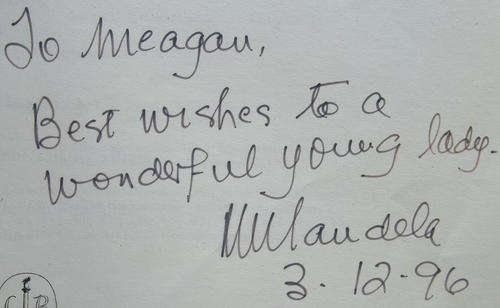 To Meagan,
Best wishes to a
wonderful young lady.
NMandela
3.12.96